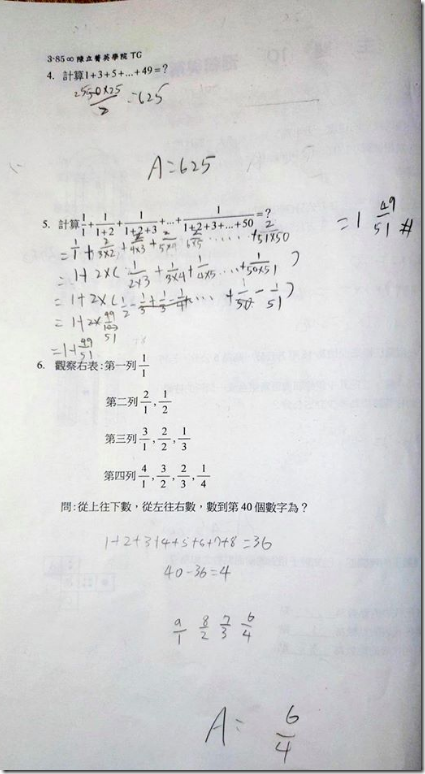 3-85∞陸立菁英學院 TG
4. 計算1+3+5+…+49=?
50×25/2=625
A=625
5. 計算1/1+1/(1+2)+1/(1+2+3)+…+1/(1+2+3+…+50)=?
=1 49/51 #
=1/1+2/(3×2)+2/(4×3)+2/(5×4)+2/(6×5)……+2/(51×50)
=1+2×(1/(2×3)+1/(3×4)+1/(4×5)…+1/(50×51))
=1+2×(1/2-1/3+1/3-1/4…+1/50-1/51)
=1+2×49/102
=1+49/51
6. 觀察右表:第一列 1/1
第二列 2/1, 1/2
第三列 3/1, 2/2, 1/3
第四列 4/1, 3/2, 2/3, 1/4
問:從上往下數,從左往右數,數到第40個數字為?
1+2+3+4+5+6+7+8=36
40-36=4
9/1 8/2 7/3 6/4
A= 6/4